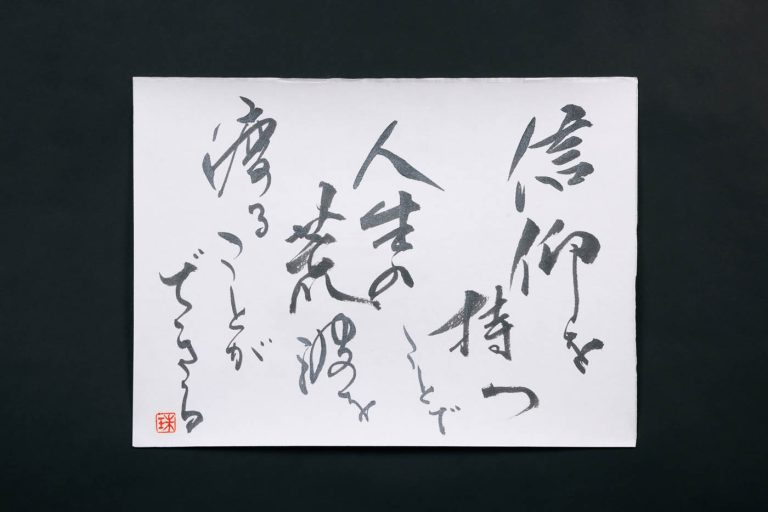 信仰を
持つ
ことで
人生の
荒波を
渡る
ことが
できる
珠